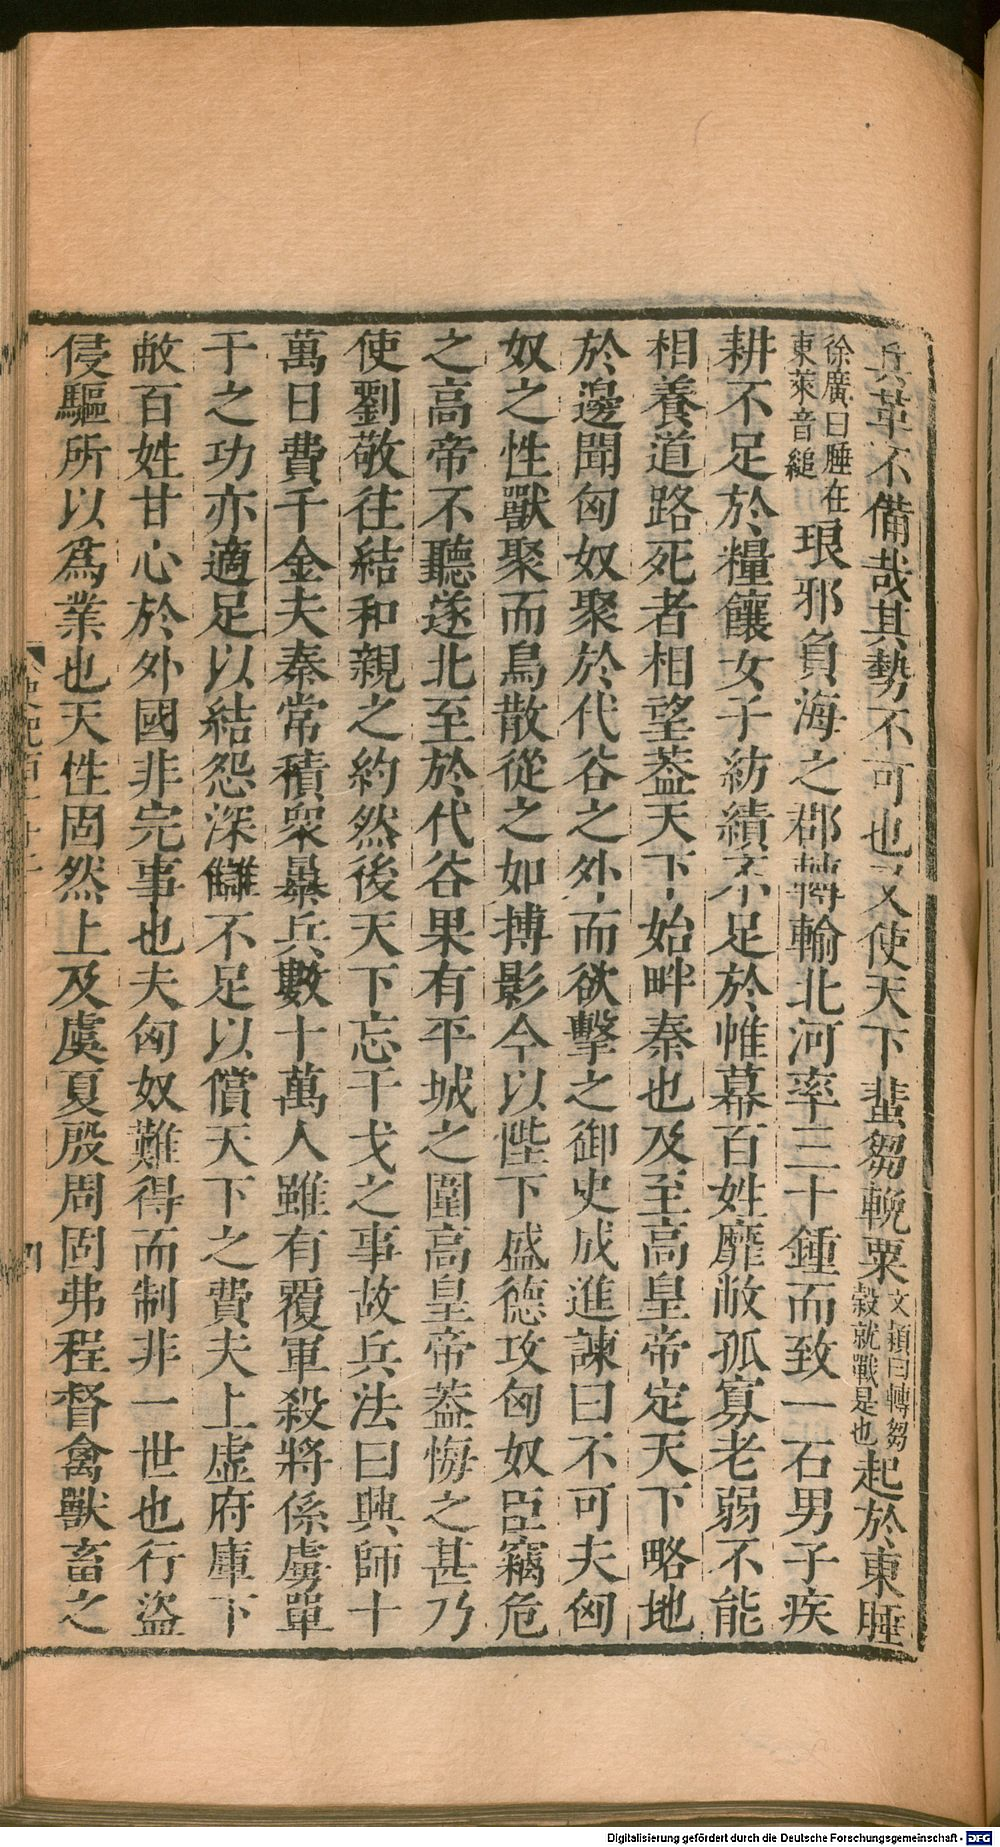 兵革不備哉其勢不可也又使天下蜚芻輓粟文穎曰轉芻穀就戰是也起於東腄
徐廣曰腄在東萊音縋琅邪負海之郡轉輸北河率三十鍾而致一石男子疾
耕不足於糧饟女子紡績不足於帷幕百姓靡敝孤寡老弱不能
相養道路死者相望葢天下始畔秦也及至高皇帝定天下略地
於邊聞匈奴聚於代谷之外而欲擊之御史成進諫曰不可夫匈
奴之性獸聚而鳥散從之如搏影今以陛下盛德攻匈奴臣竊危
之高帝不聽遂北至於代谷果有平城之圍高皇帝葢悔之甚乃
使劉敬往結和親之約然後天下忘干戈之事故兵法曰興師十
萬日費千金夫秦常積衆暴兵數十萬人雖有覆軍殺將係虜單
于之功亦適足以結怨深讎不足以償天下之費夫上虛府庫下
敝百姓甘心於外國非完事也夫匈奴難得而制非一世也行盜
侵驅所以爲業也天性固然上及虞夏殷周固弗程督禽獸畜之
史記百十二
四
Digitalisierung gefördert durch die Deutsche Forschungsgemeinschaft - DFG